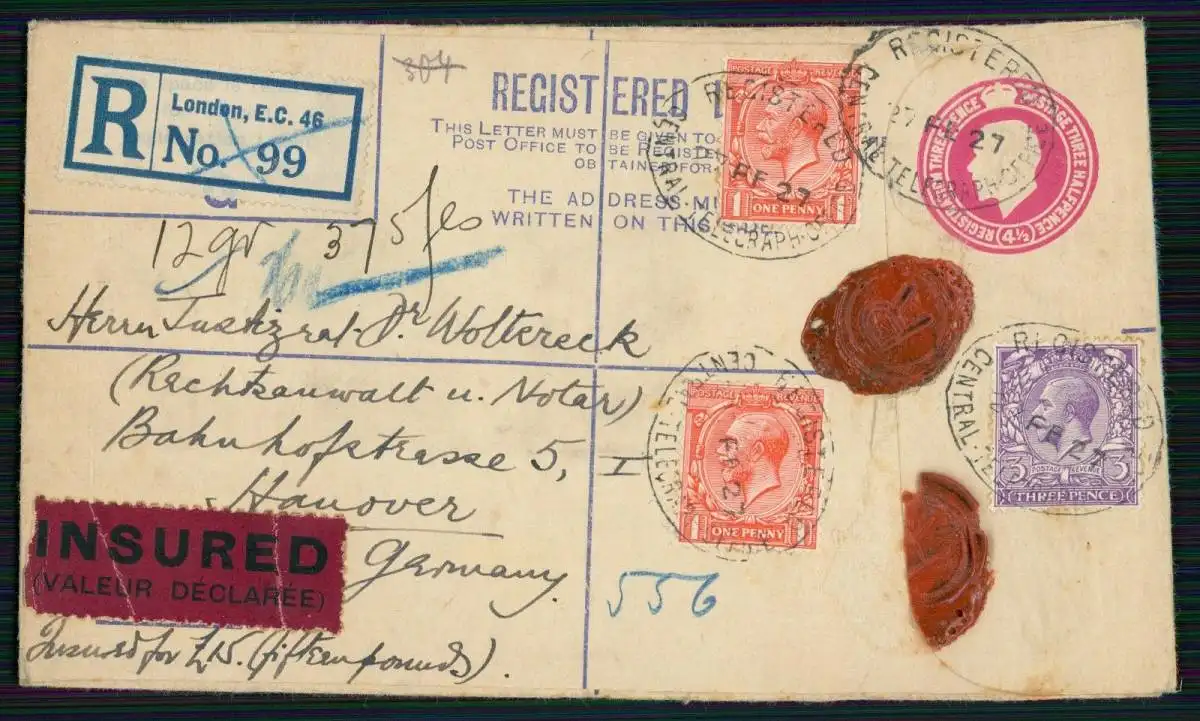 R
London, E.C. 46
No. 99
304
REGISTERED
THIS LETTER MUST BE GIVEN TO
POST OFFICE TO BE REGISTE
OBTAINED FOR
THE ADDRESS MU
WRITTEN ON THIS SIDE
POSTAGE REVENUE
1 ONE PENNY 1
REGISTERED
FE 27
CENTRAL TELEGRAPH OFFICE
REGISTERED
27 FE 27
CENTRAL TELEGRAPH OFFICE
REGISTRATION THREE PENCE POSTAGE THREE HALFPENCE
(4½)
12 gr 375
Herrn Justizrat Dr Woltereck
(Rechtsanwalt u. Notar)
Bahnhofstrasse 5, I
Hanover
Germany
R
POSTAGE REVENUE
1 ONE PENNY
REGISTERED
FE 27
CENTRAL TELEGRAPH
REGISTERED
FE 27
CENTRAL
3 POSTAGE REVENUE 3
THREE PENCE
INSURED
(VALEUR DÉCLARÉE)
556
Insured for £15. (fifteen pounds).